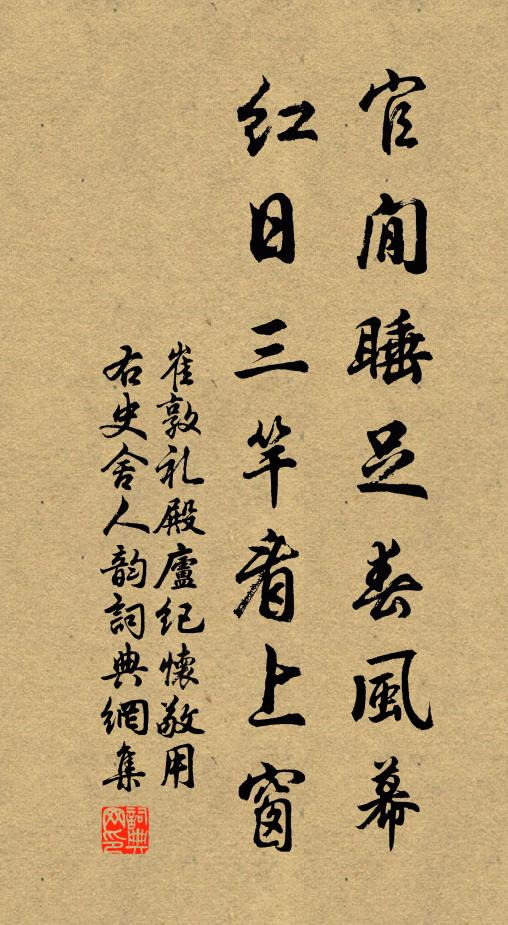 官閒睡足春風幕
紅日三竿看上窗
崔敦礼殿廬紀懷敬用
右史舍人韵詞典網集
詞典网印